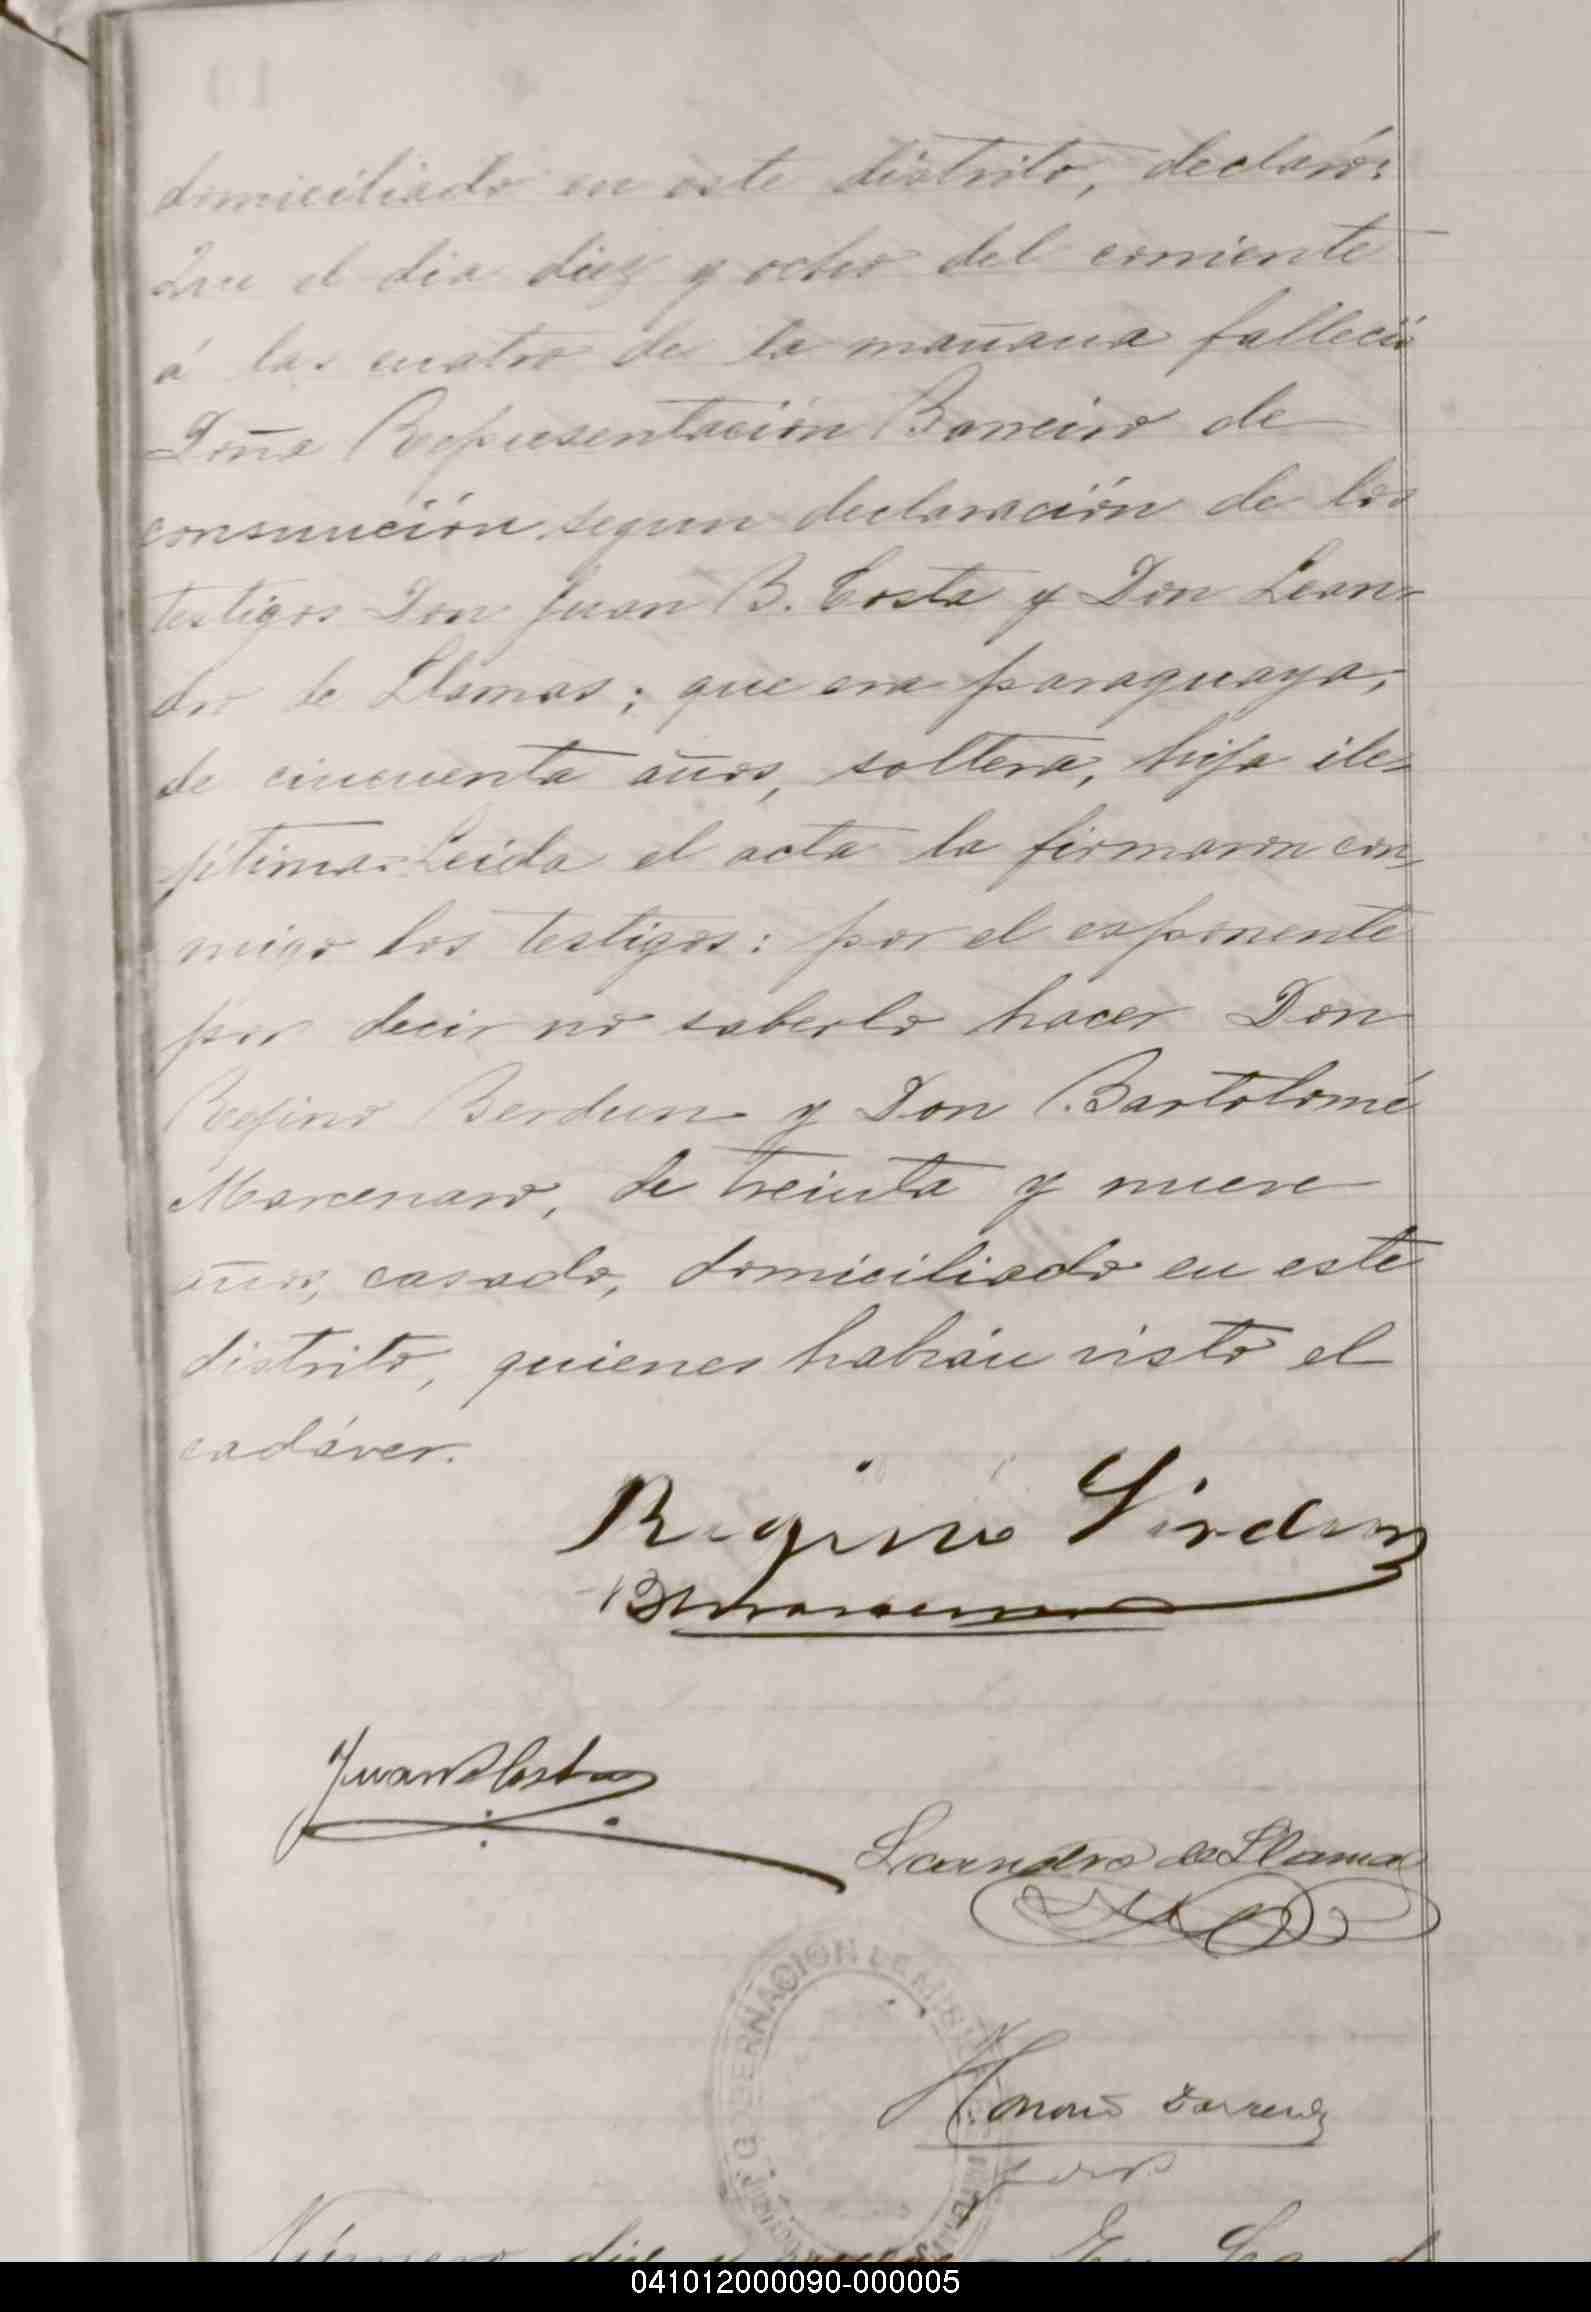 domiciliado en este distrito, declaró:
Que el dia diez y ocho del corriente
á las cuatro de la mañana falleció
Doña Representación Barreiro de
consunción segun declaración de los
testigos Don Juan B. Costa y Don Lean-
dro de Llamas; que era paraguaya,
de cincuenta años, soltera, hija ile-
jítima. Leida el acta la firmaron con-
migo los testigos: por el esponente
por decir no saberlo hacer Don
Regino Berdun y Don Bartolomé
Marcenaro, de treinta y nueve
años, casado, domiciliado en este
distrito, quienes habian visto el
cadáver.
Regino Virdun
B Marcenaro
Juan B Costa
Leandro de Llamas
GOBERNACION DE MISIONES
Número diez y nueve - En
041012000090-000005